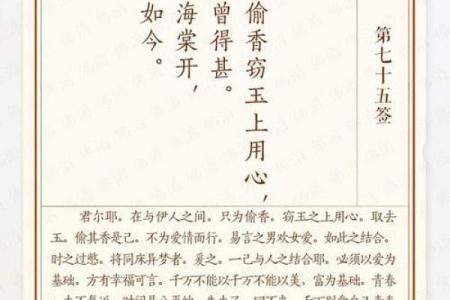 第七十五签
偷香窃玉上用心，
曾得甚。
海棠开，
如今。
君尔耶。在与伊人之间。只为偷香。窃玉之上用心。取去
玉。偷其香是己。不为爱情而行。易言之男欢女爱。如此之结合。
时之过憨。将同床异梦者。爰之。一己与人之结合耶。必须以爱为
基础。方有幸福可言。千万不能以千万不能以美、富为基础。青春